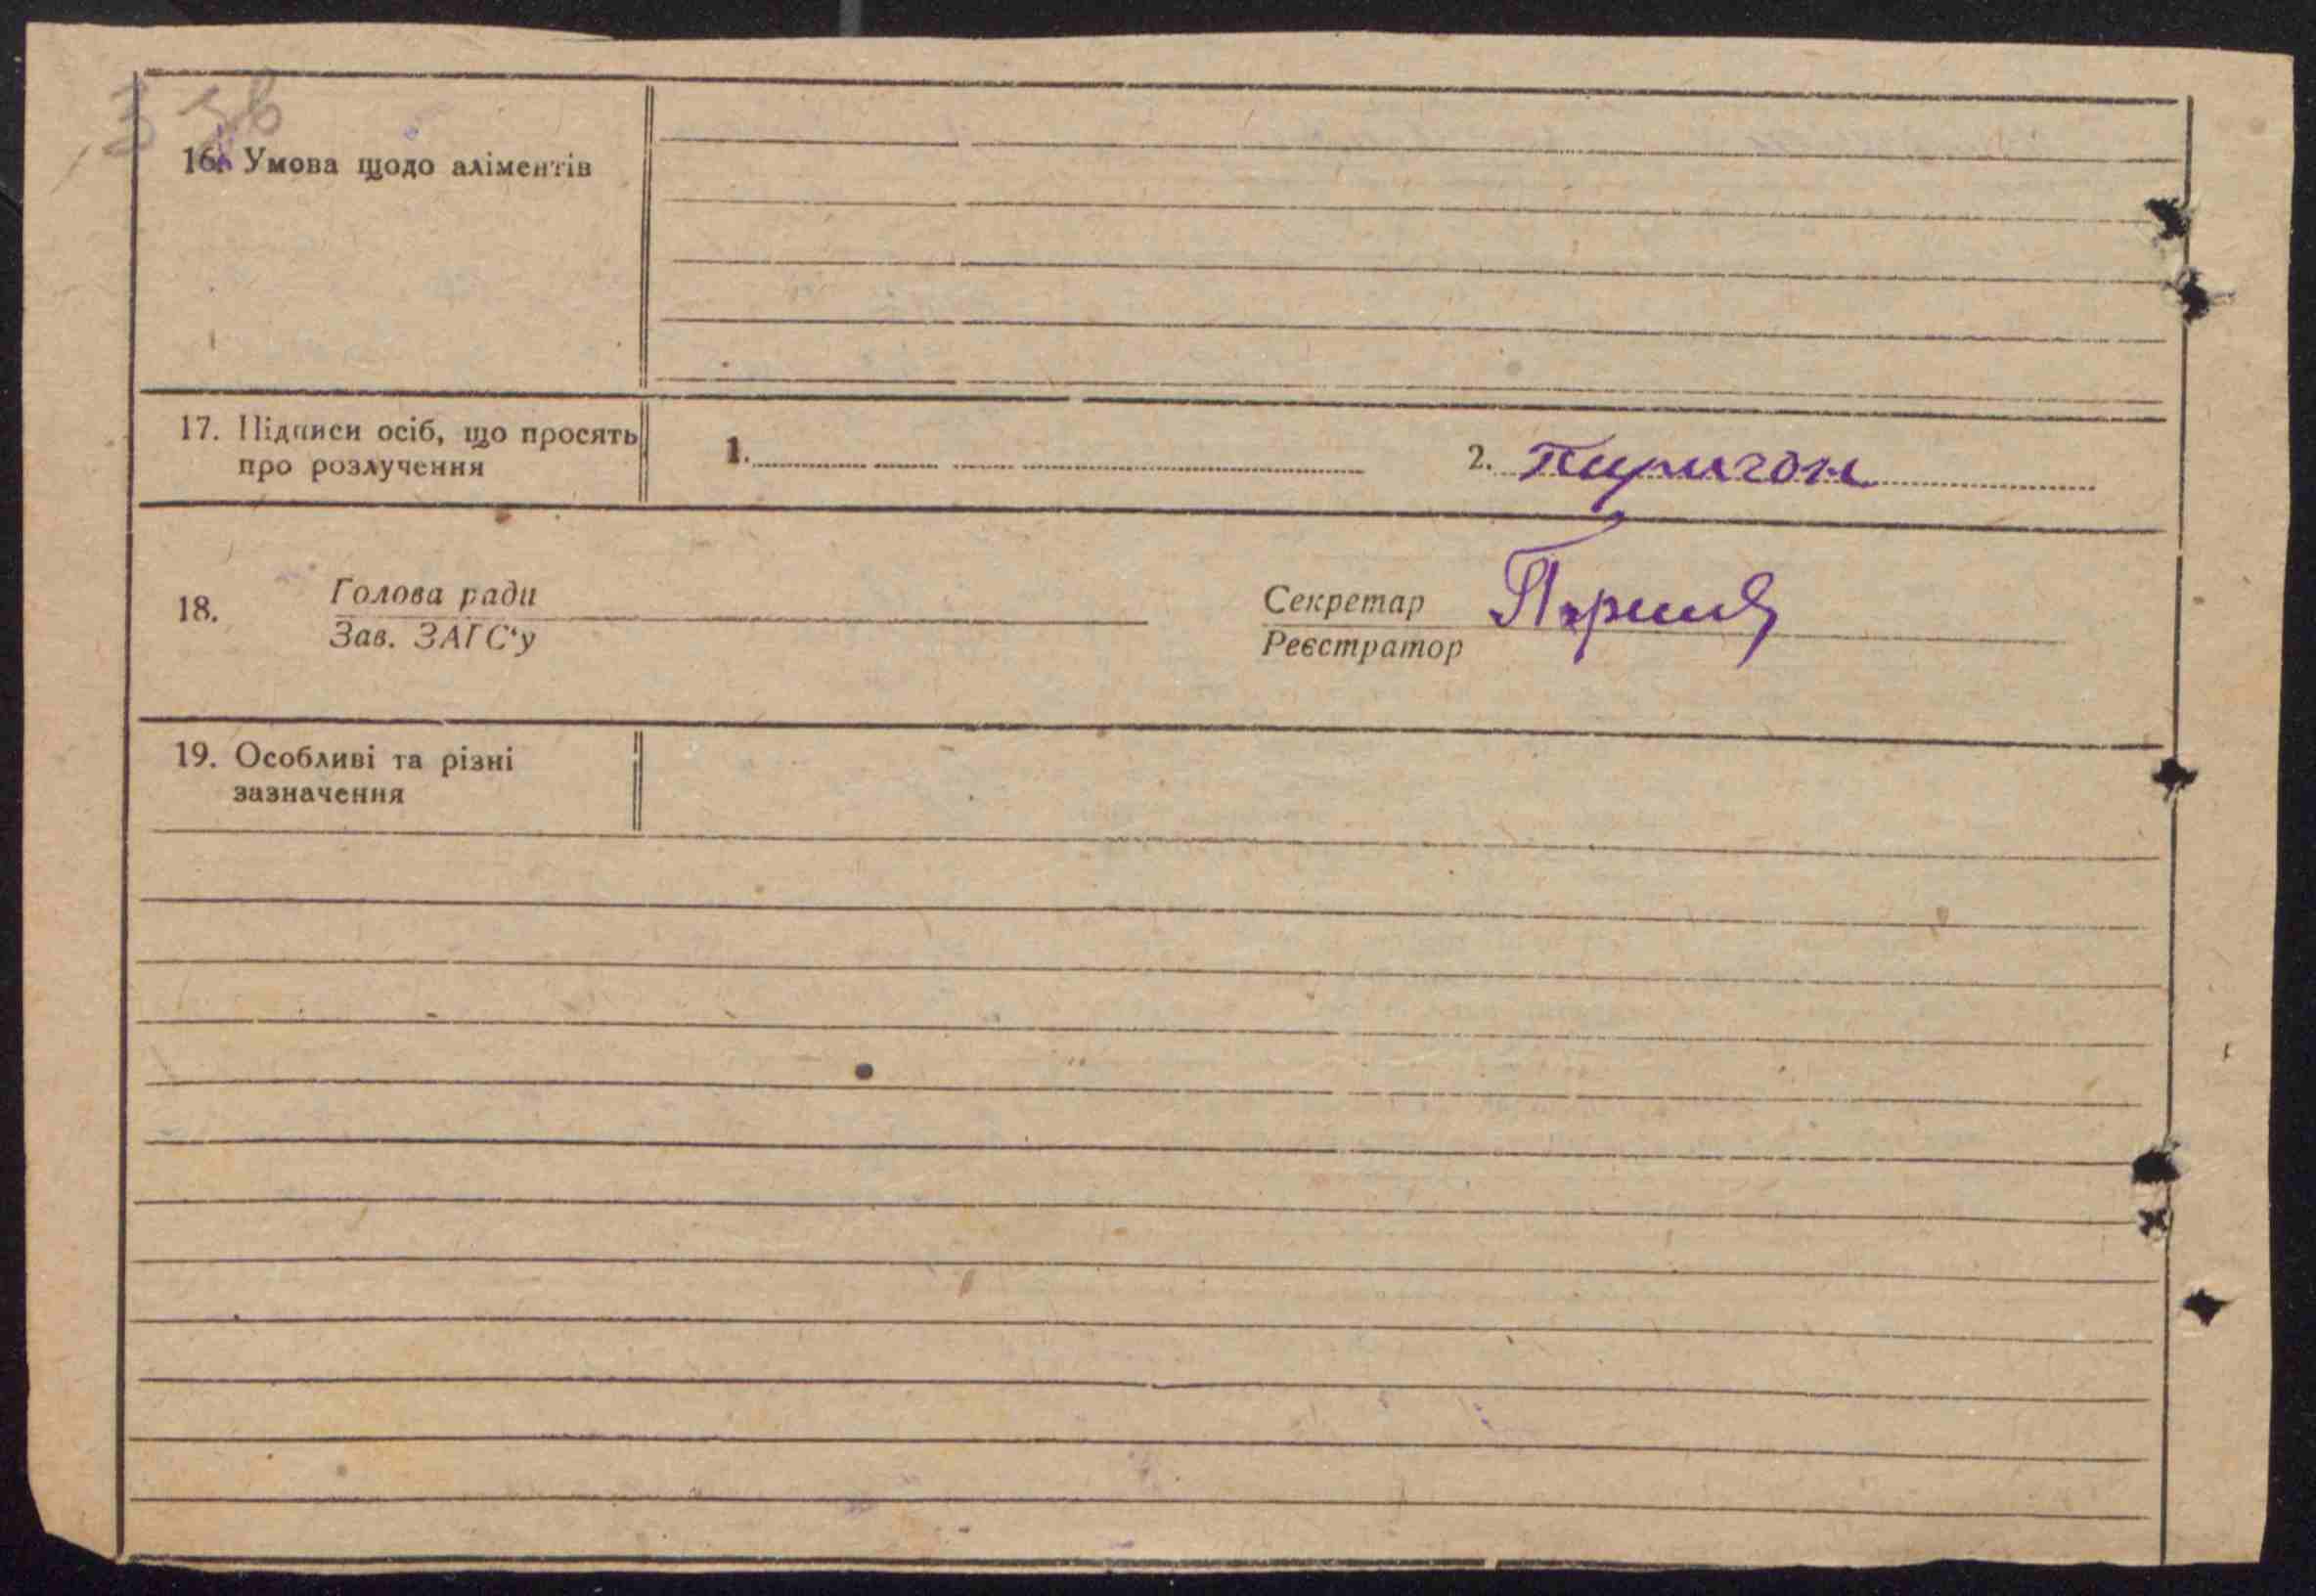 16. Умова щодо аліментів
17. Підписи осіб, що просять
про розлучення
1.
2. Пиригон
18.
Голова ради
Зав. ЗАГС'у
Секретар
Реєстратор
19. Особливі та різні
зазначення